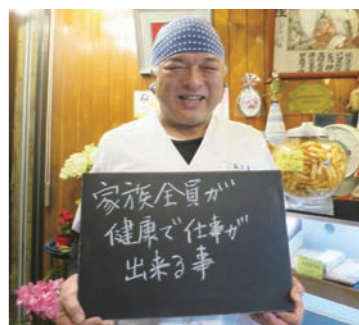 家族全員が
健康で仕事が
出来る事